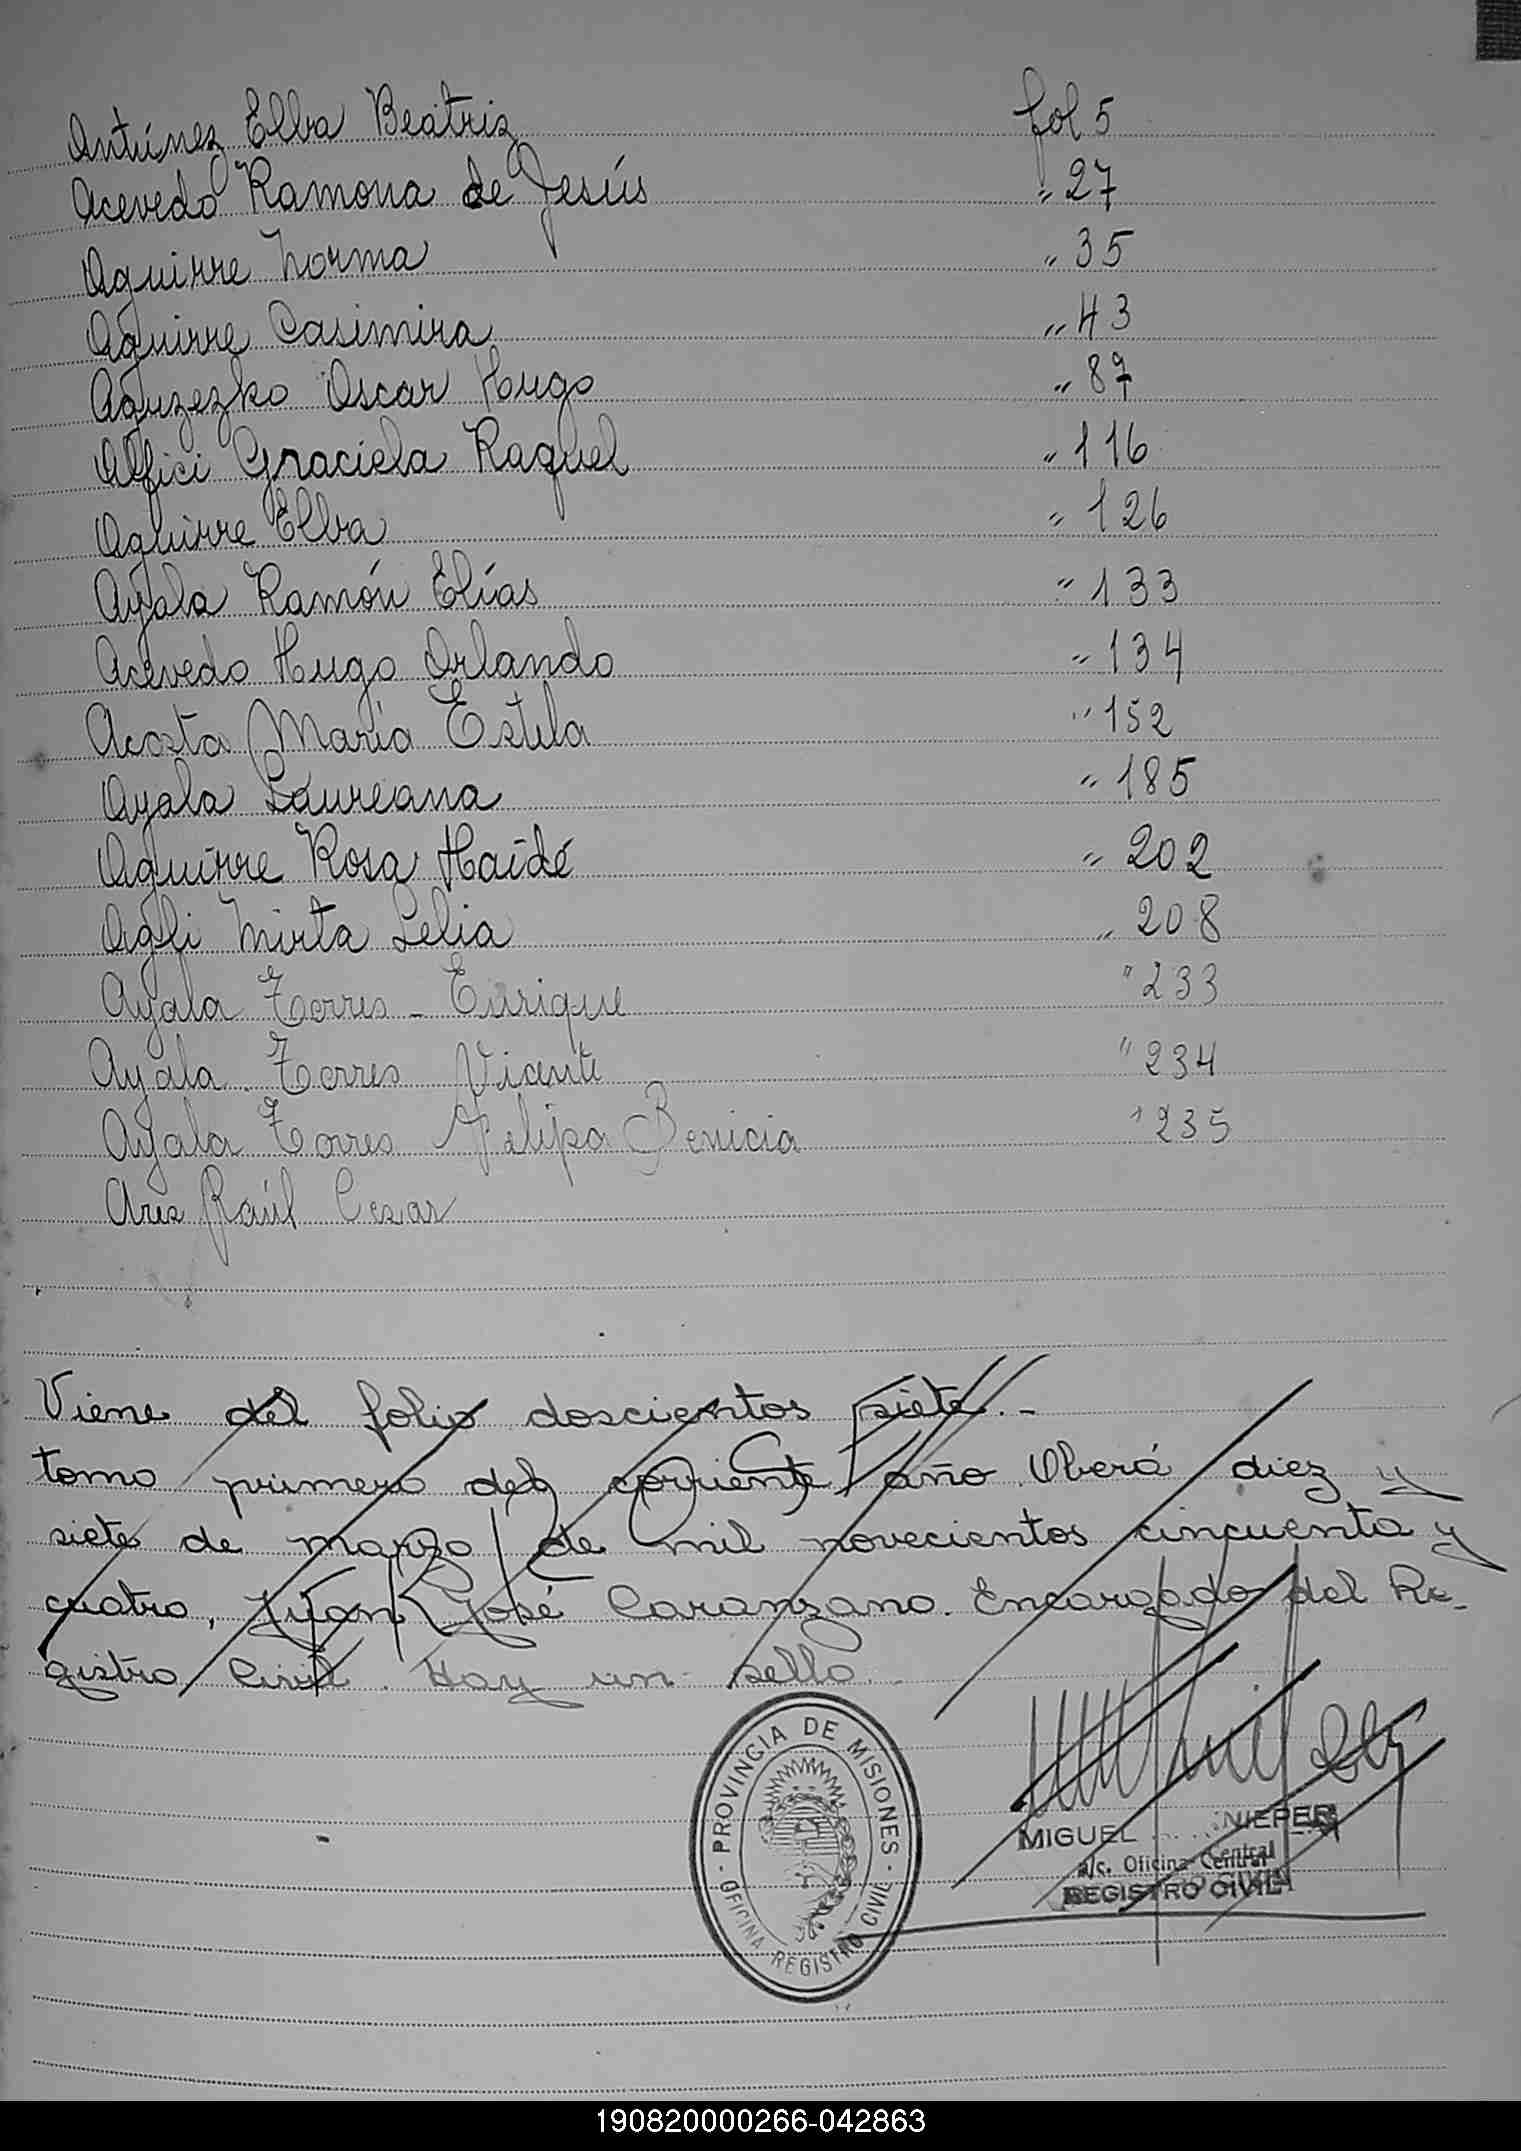 Antúnez Elba Beatriz fol 5
Acevedo Ramona de Jesús " 27
Aguirre Norma " 35
Aguirre Casimira " 43
Aguzezko Oscar Hugo " 87
Alfici Graciela Raquel " 116
Aguirre Elba " 126
Ayala Ramón Elías " 133
Acevedo Hugo Orlando " 134
Acosta María Estela " 152
Ayala Laureana " 185
Aguirre Rosa Haidé " 202
Agli Mirta Lelia " 208
Ayala Torres - Enrique " 233
Ayala Torres Vicente " 234
Ayala Torres Felipa Benicia " 235
Ares Raúl Cesar
Viene del folio doscientos siete.-
tomo primero del corriente año Oberá diez y
siete de marzo de mil novecientos cincuenta y
cuatro, Juan José Caranzano. Encargado del Re-
gistro Civil. Hay un sello.
PROVINCIA DE MISIONES
OFICINA REGISTRO CIVIL
MIGUEL NIEPER
a/c. Oficina Central
REGISTRO CIVIL
190820000266-042863